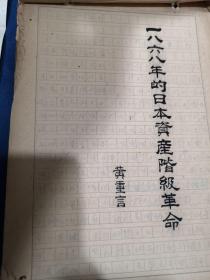 一八六八年的日本資產階級革命
黃重言